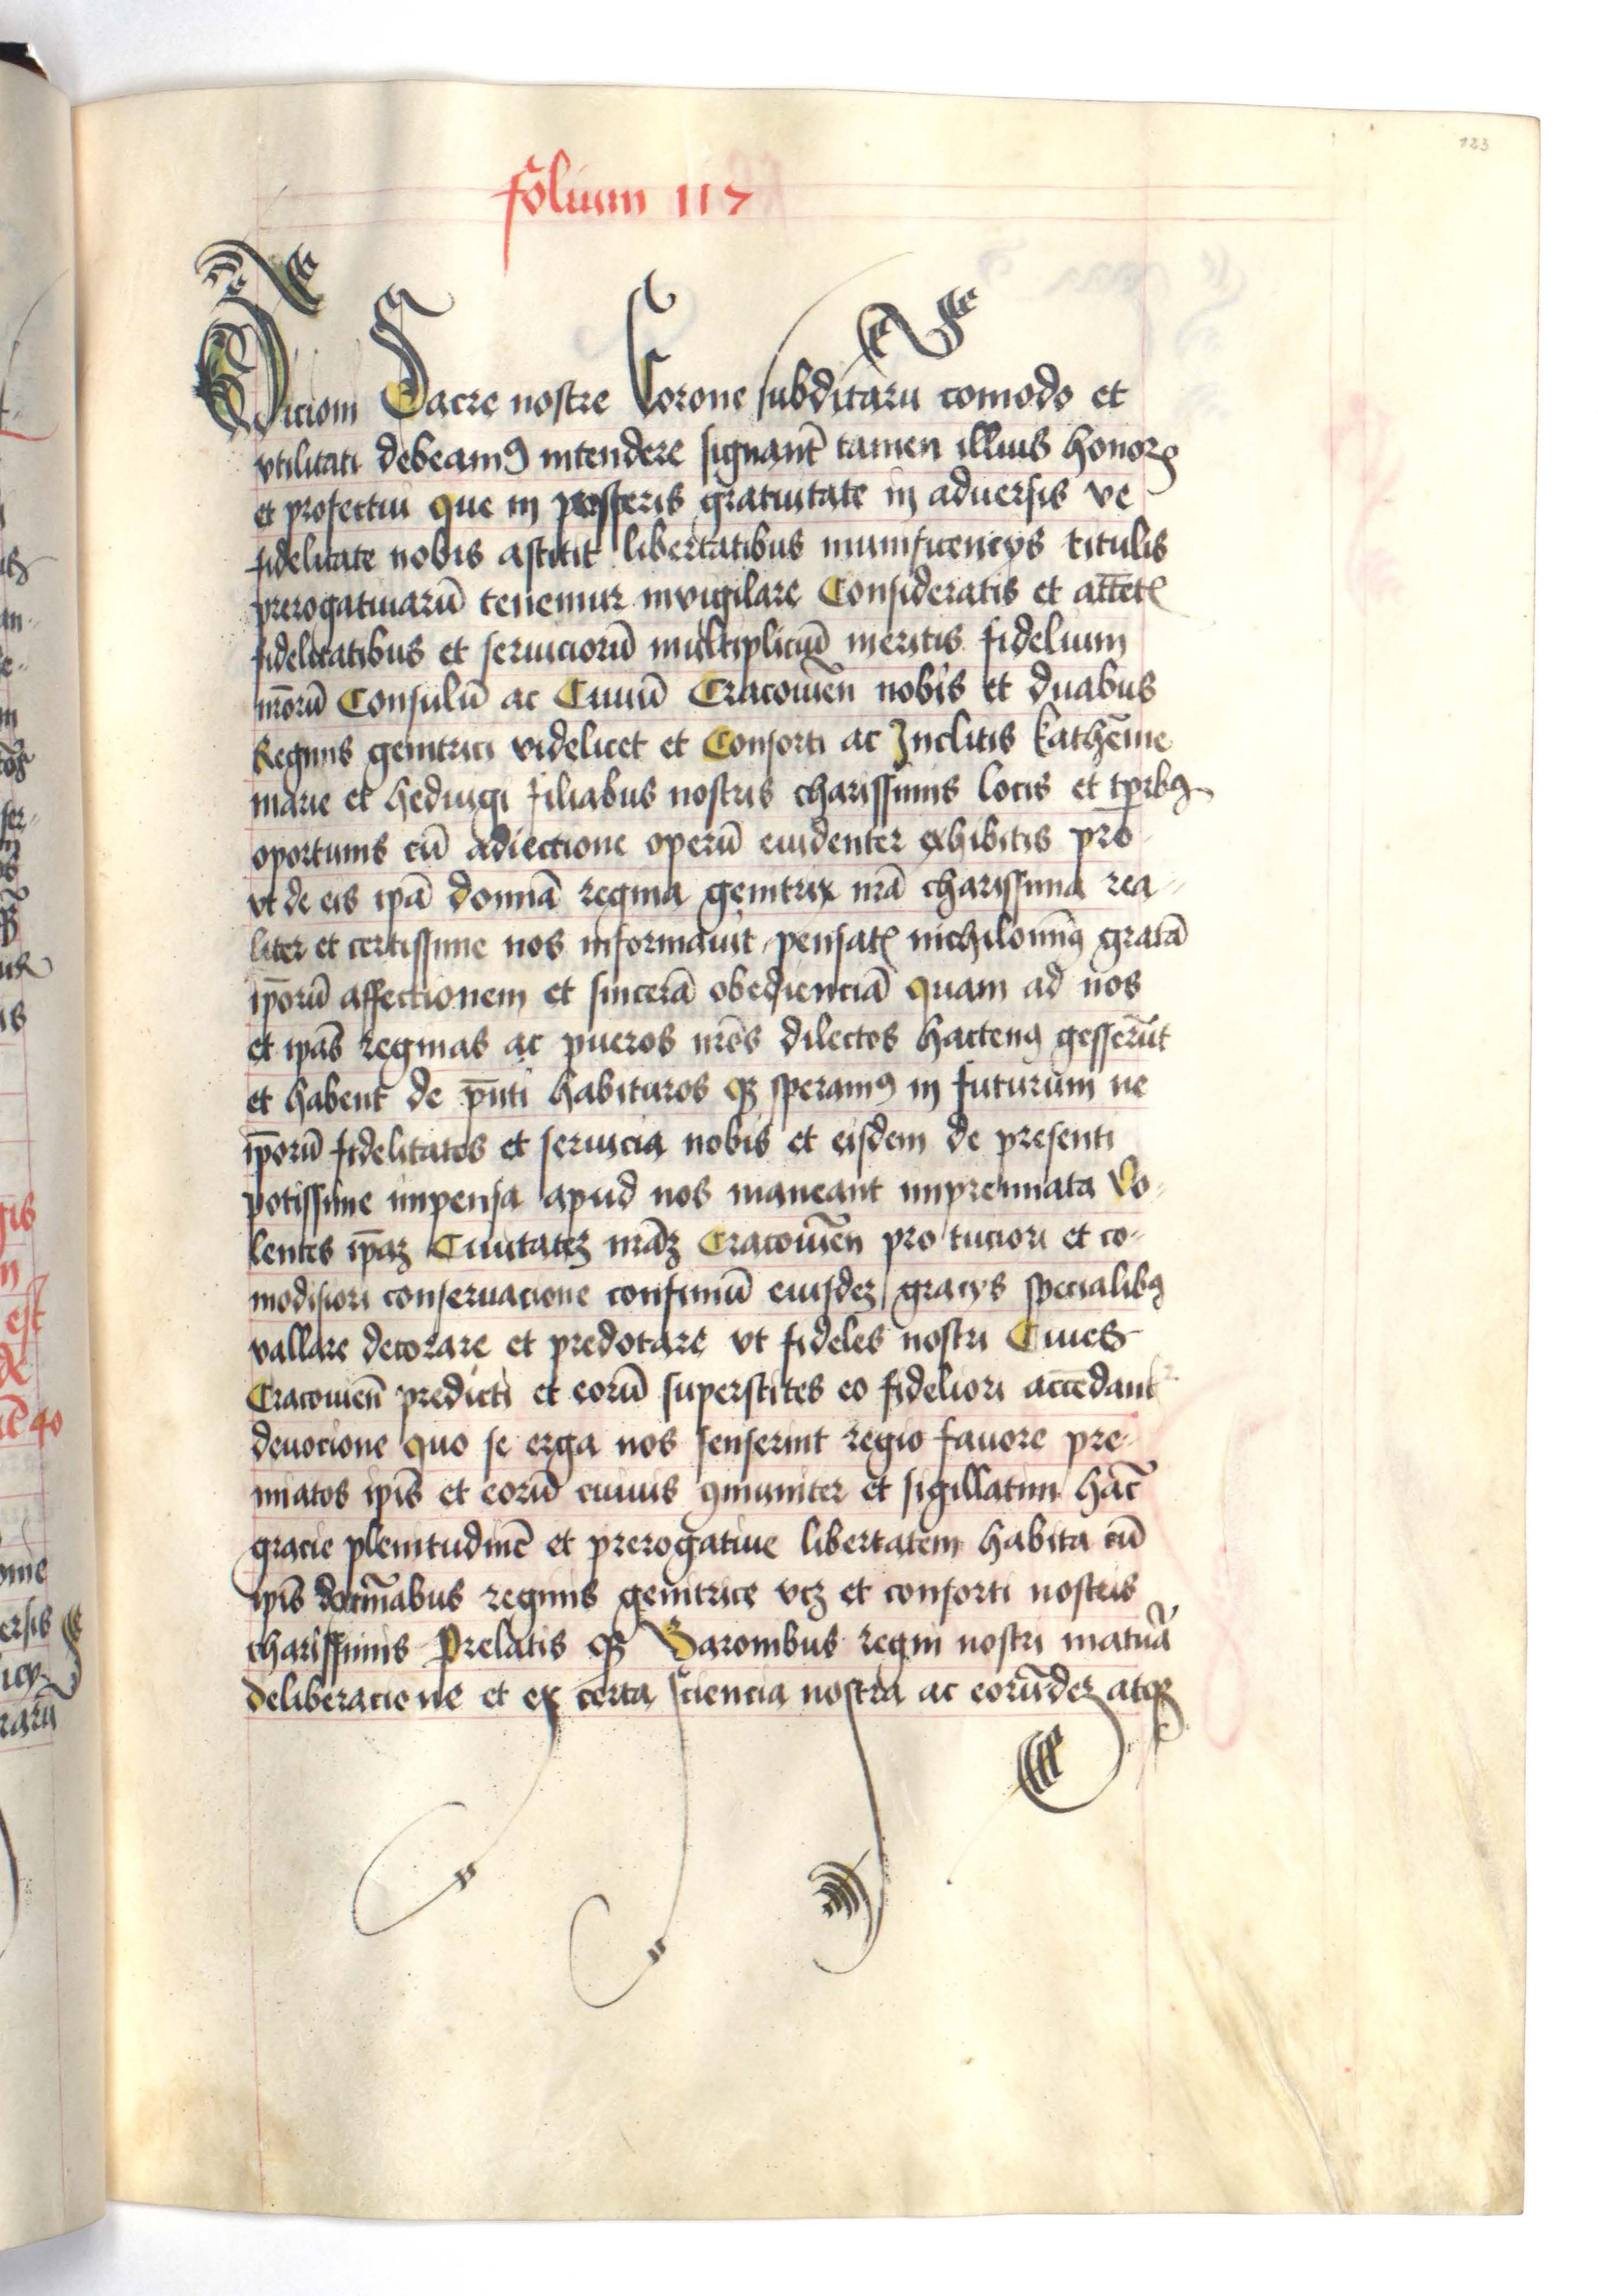 123
folium 117
Dicioni Sacre nostre Corone subditarū comodo et
vtilitati debeamꝰ intendere signant̄ tamen illius honorꝭ
et profectui que in prosperis gratuitate in aduersis ve
fidelitate nobis astitit libertatibus munificencys titulis
prerogatiuarū tenemur invigilare Consideratis et attētꝭ
fidelitatibus et seruiciorū multipliciū meritis fidelium
nr̄orū Consulū ac Ciuiū Cracouien̄ nobis et duabus
Reginis genitrici videlicet et Consorti ac Inclitis Kathēine
marie et hedvigi filiabus nostris charissimis locis et tp̄rbꝫ
oportunis cū adiectione operū euidenter exhibitis pro
vt de eis ipā domīa regina genitrix nr̄a charissima rea-
liter et certissime nos informauit pensatꝭ nichilominꝰ gratā
ip̄orū affectionem et sincerā obedienciā quam ad nos
et ipās reginas ac pueros nr̄os dilectos hactenꝰ gesserūt
et habent de p̄nti habituros qꝫ speramꝰ in futurum ne
ip̄orū fidelitates et seruicia nobis et eisdem de presenti
potissime impensa apud nos maneant impremiata Vo-
lentes ip̄aꝫ Ciuitateꝫ nr̄aꝫ Cracouien̄ pro tuciori et co-
modisiori conseruacione confiniū eiusdeꝫ gracys specialibꝫ
vallare decorare et predotare vt fideles nostri Ciues
Cracouien̄ predicti et eorū superstites eo fideliori accedant
deuocione quo se erga nos senserint regio fauore pre-
miatos ip̄is et eorū ciuius ꝯmuniter et sigillatim hāc
gracie plenitudinē et prerogatiue libertatem habita cū
ip̄is domīabus reginis genitrice vꝫ et consorti nostris
charissimis Prelatis qꝫ Baronibus regni nostri matura
deliberacione et ex certa sciencia nostra ac eorūdeꝫ atqꝫ